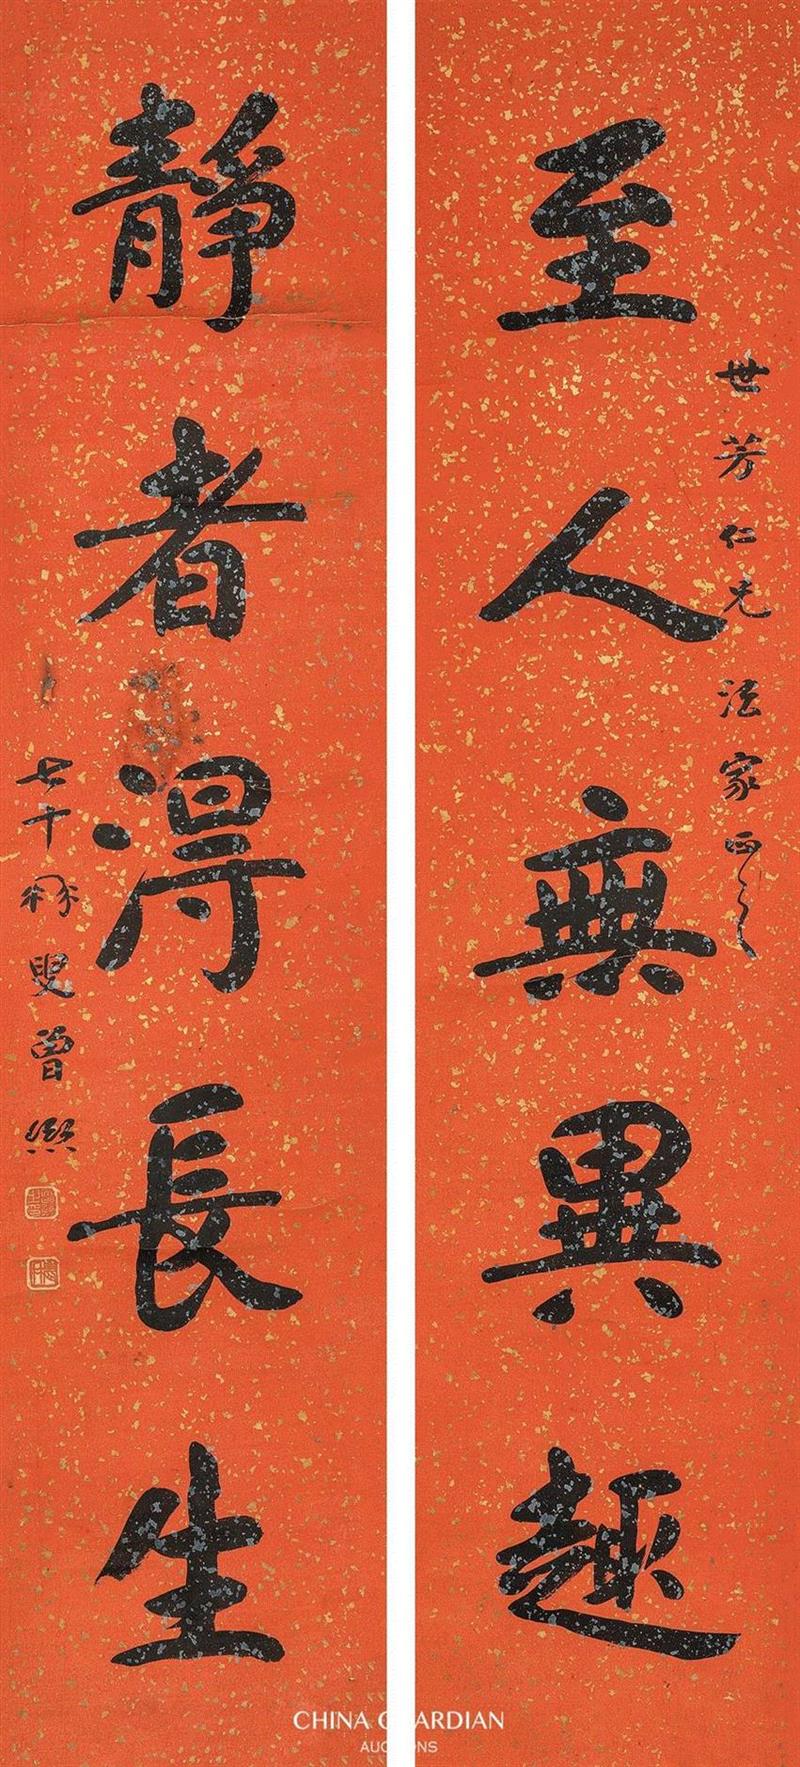 至人無異趣
世芳仁兄法家正之
靜者得長生
七十
叟曾熙
CHINA GUARDIAN
AUCTIONS